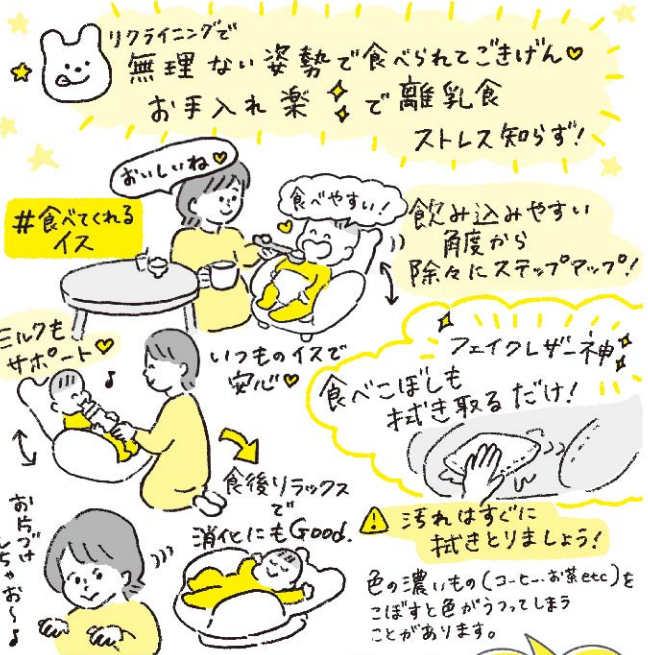 リクライニングで
無理ない姿勢で食べられてごきげん♡
お手入れ楽✨で離乳食
ストレス知らず!
おいしいね♡
食べやすい!
#食べてくれる
イス
飲み込みやすい
角度から
除々にステップアップ!
ミルクも
サポート♡
いつものイスで
安心♡
フェイクレザー神✨
食べこぼしも
拭き取るだけ!
食後リラックス
で
消化にもGood.
お片づけ
しちゃお〜♪
汚れはすぐに
拭きとりましょう!
色の濃いもの(コーヒー、お茶etc)を
こぼすと色がうつってしまう
ことがあります。